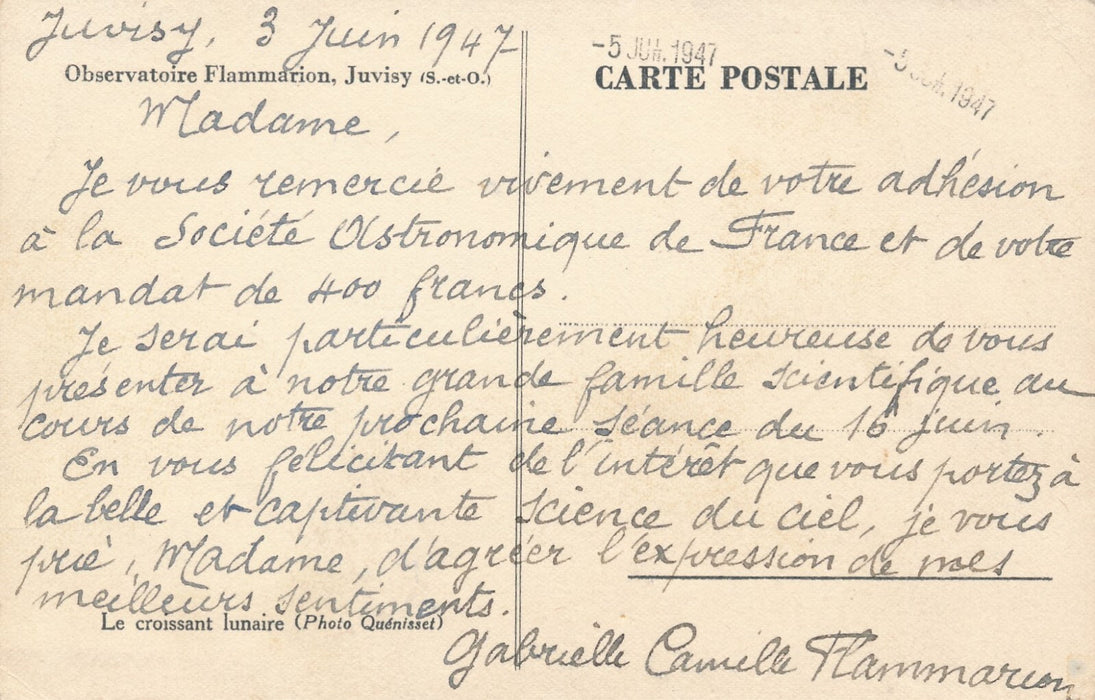 Juvisy, 3 Juin 1947
-5 JUIN 1947
-5 JUIN 1947
Observatoire Flammarion, Juvisy (S.-et-O.)
CARTE POSTALE
Madame,
Je vous remercie vivement de votre adhésion
à la Société Astronomique de France et de votre
mandat de 400 francs.
Je serai particulièrement heureuse de vous
présenter à notre grande famille scientifique au
cours de notre prochaine séance du 16 juin.
En vous félicitant de l'intérêt que vous portez à
la belle et captivante science du ciel, je vous
prie, Madame, d'agréer l'expression de mes
meilleurs sentiments.
Le croissant lunaire (Photo Quénisset)
Gabrielle Camille Flammarion